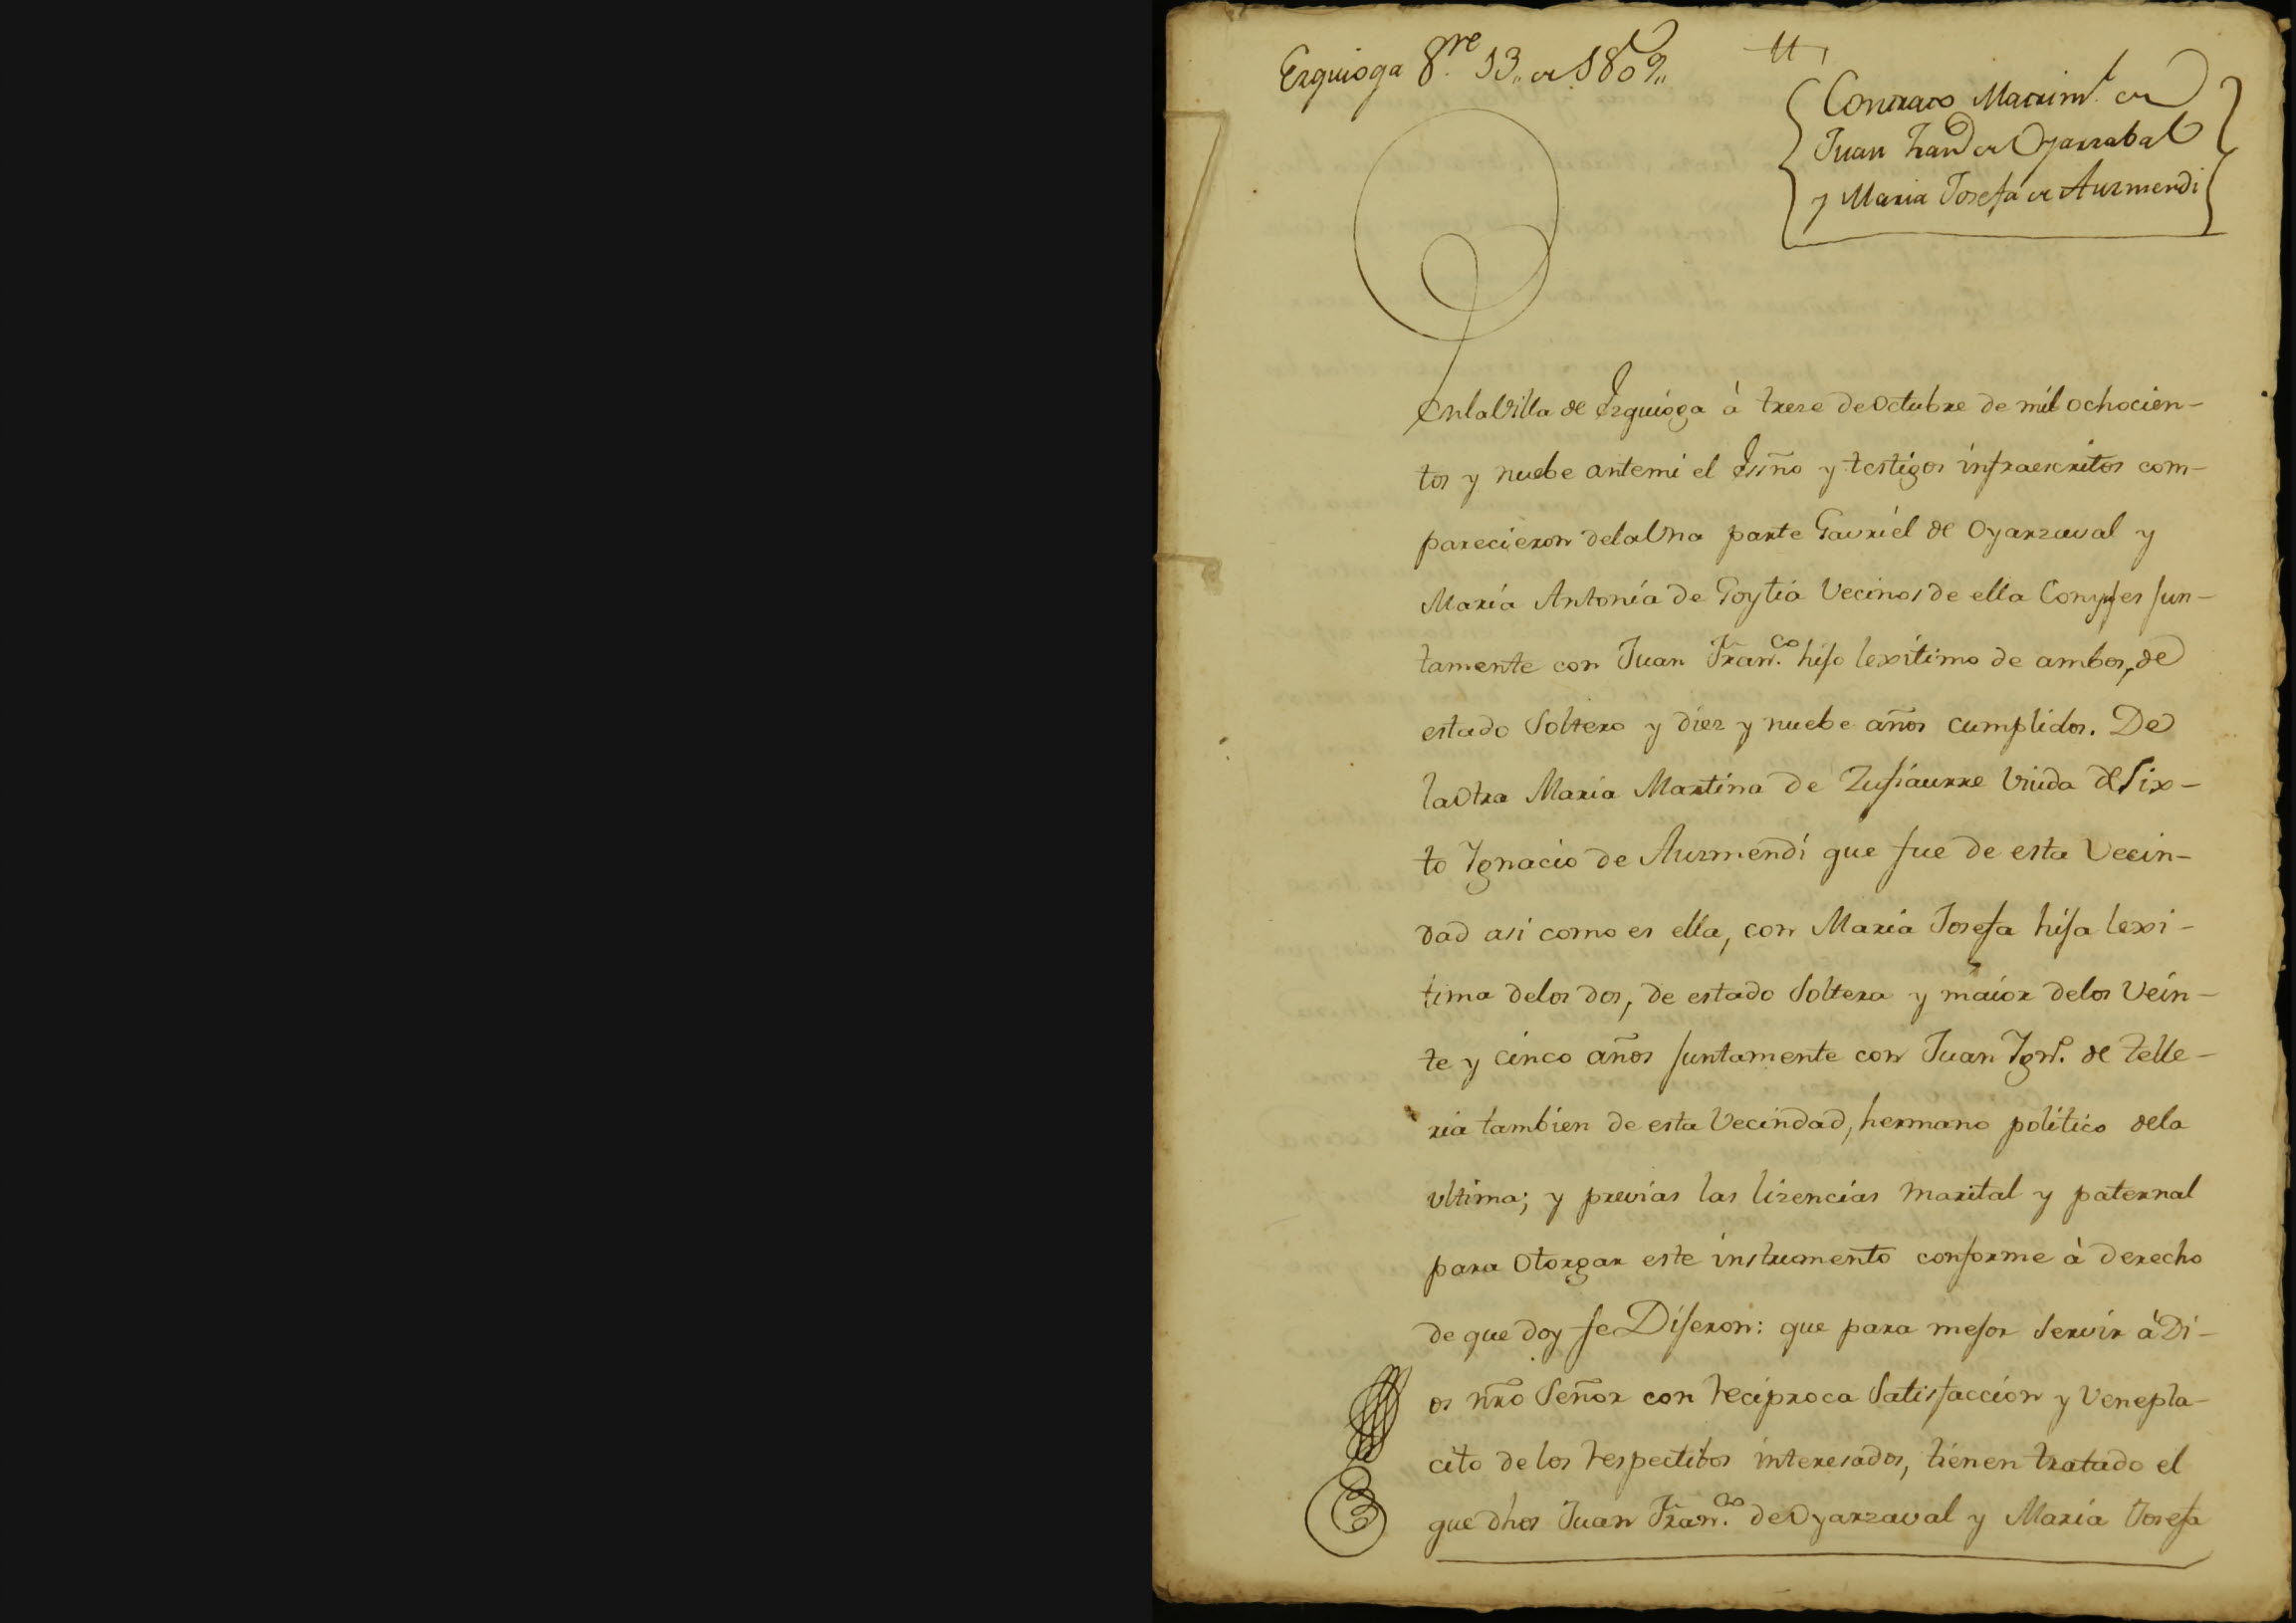 Ezquioga 8.re 13,, de 1809,,
Contrato Matrim.l de
Juan Fran.co de Oyarzabal
y Maria Josefa de Aurmendi
En la Villa de Ezquioga à treze de Octubre de mil ochocien-
tos y nuebe ante mi el Essño y testigos infraescritos com-
parecieron de la Una parte Gavriel de Oyarzaval y
Maria Antonia de Goytia Vecinos de ella Conyujes jun-
tamente con Juan Fran.co hijo lexitimo de ambos, de
estado Soltero y diez y nuebe años cumplidos. De
la Otra Maria Martina de Zufiaurre Viuda de Six-
to Ignacio de Aurmendi que fue de esta Vecin-
dad asi como es ella, con Maria Josefa hija lexi-
tima de los dos, de estado Soltera y maior de los Vein-
te y cinco años juntamente con Juan Ign.o de Telle-
ria tambien de esta Vecindad, hermano politico de la
ultima; y previas las lizencias marital y paternal
para Otorgar este instrumento conforme à derecho
de que doy fe Dijeron: que para mejor Servir à Di-
os nro Señor con reciproca Satisfaccion y Venepla-
cito de los respectibos interesados, tienen tratado el
que dhos Juan Fran.co de Oyarzaval y Maria Josefa